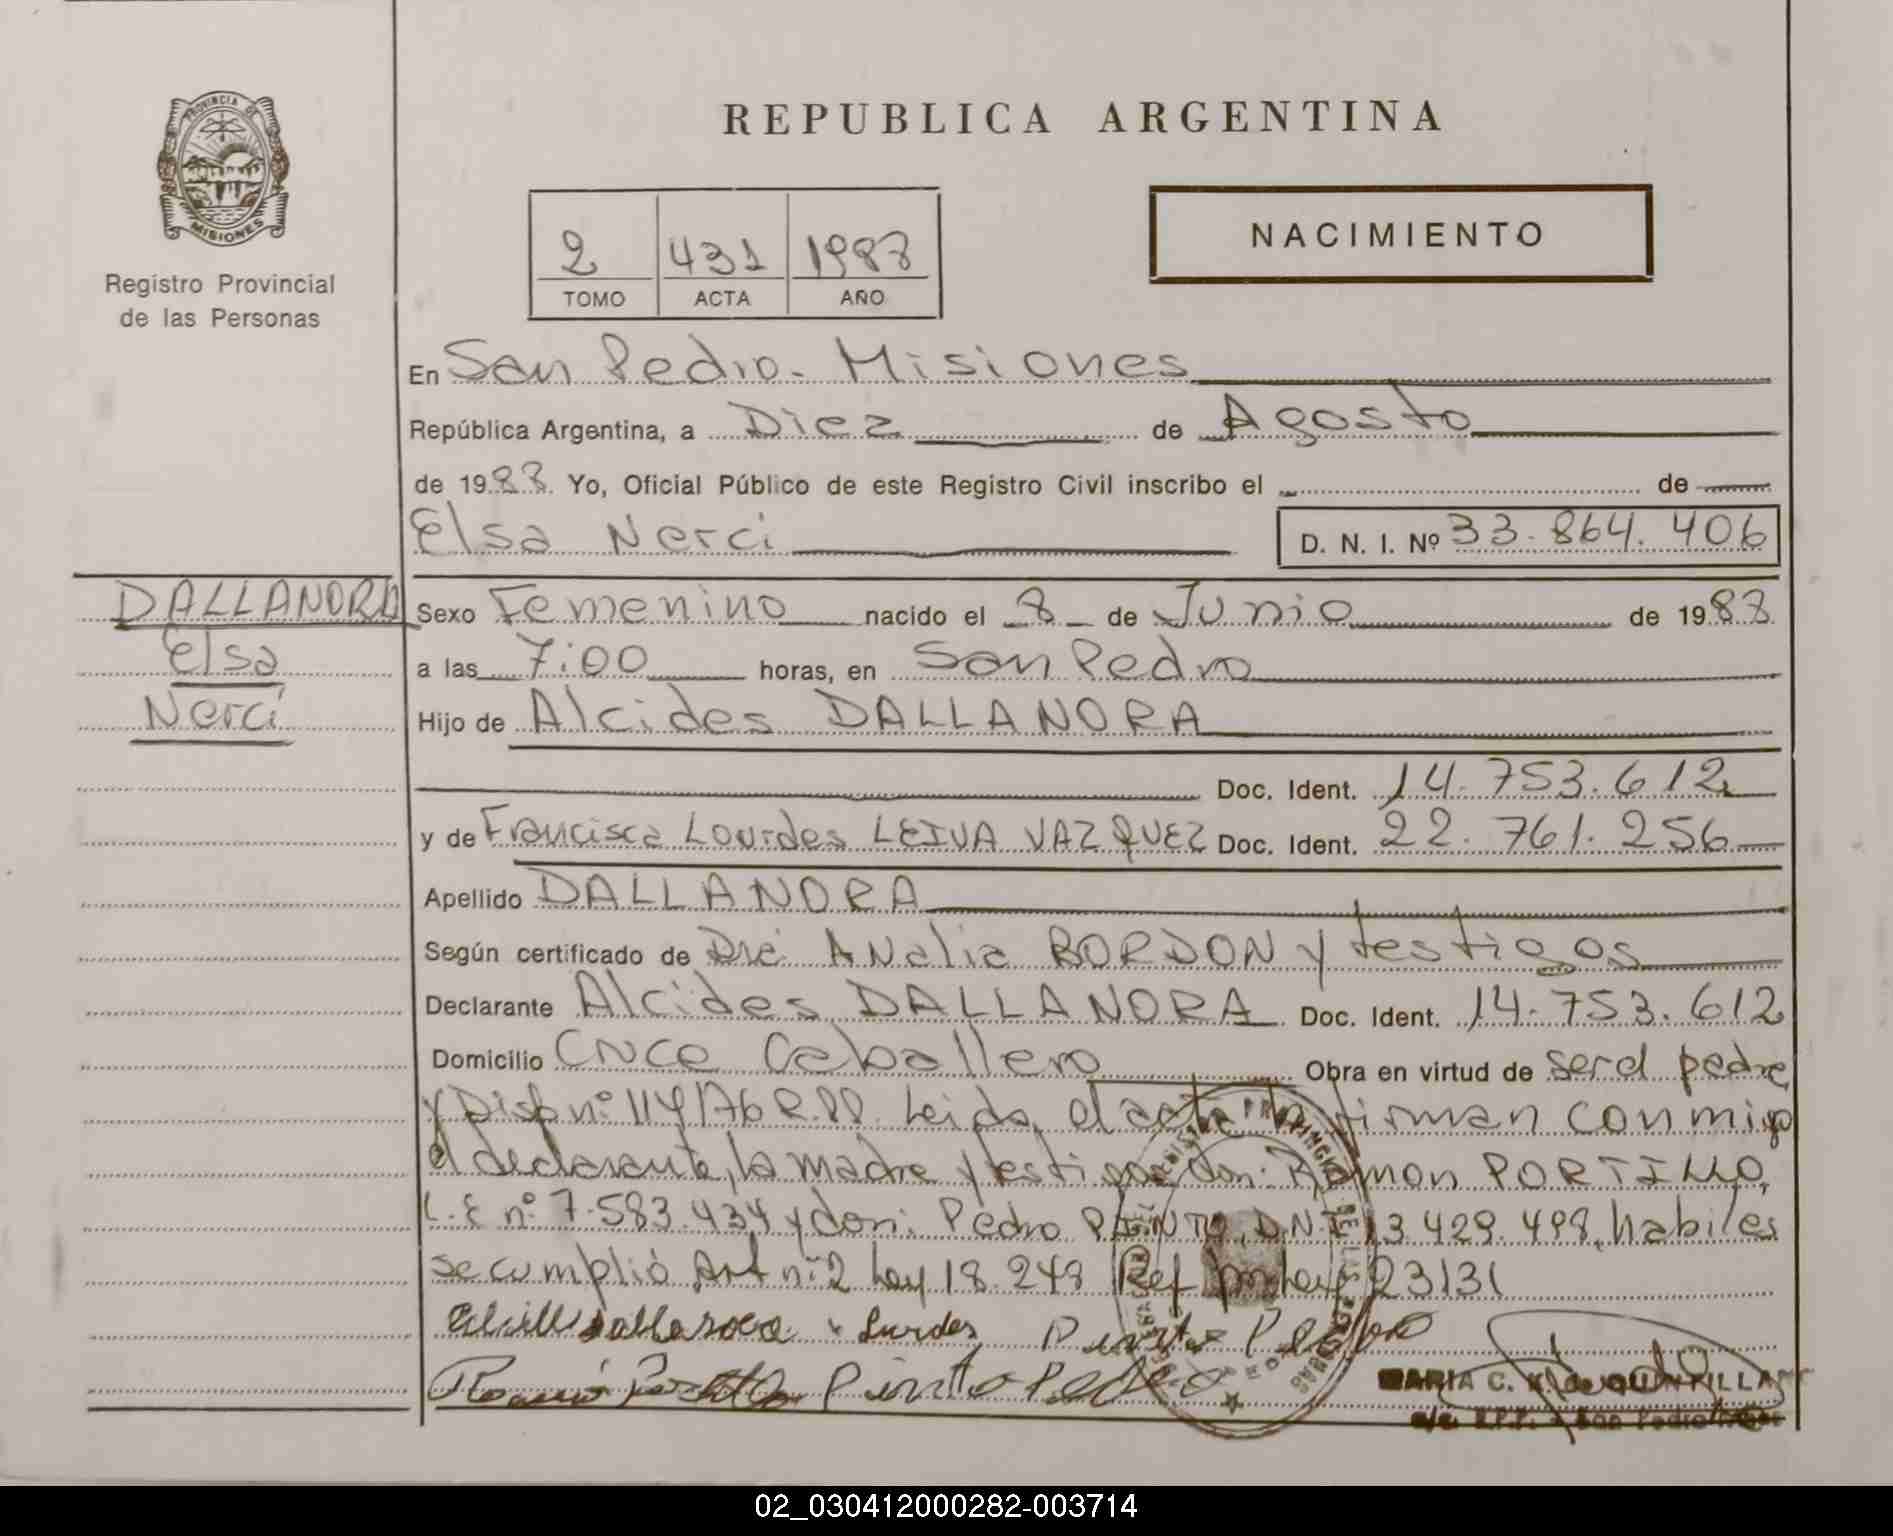 REPUBLICA ARGENTINA
PROVINCIA DE
MISIONES
Registro Provincial
de las Personas
2 431 1988
TOMO ACTA AÑO
NACIMIENTO
En San Pedro - Misiones
República Argentina, a Diez de Agosto
de 1988 Yo, Oficial Público de este Registro Civil inscribo el de
Elsa Nerci D. N. I. Nº 33.864.406
DALLANORA
Elsa
Nerci
Sexo Femenino nacido el 8 de Junio de 1988
a las 7:00 horas, en San Pedro
Hijo de Alcides DALLANORA
Doc. Ident. 14.753.612
y de Francisca Lourdes LEIVA VAZQUEZ Doc. Ident. 22.761.256
Apellido DALLANORA
Según certificado de Dra Analia BORDON y testigos
Declarante Alcides DALLANORA Doc. Ident. 14.753.612
Domicilio Cruce Caballero Obra en virtud de ser el padre
y Disp nº 114/76 R.PP. Leida el acta la firman conmigo
el declarante, la madre y testigos don: Ramon PORTILLO,
L.E nº 7.583.434 y don: Pedro PINTO, D.N.I 13.429.498, habiles
se cumplió Art nº 2 Ley 18.248 Ref por Ley 23131
Dallanora Lurdes Pinto Pedro
Ramón Portillo Pinto Pedro
MARIA C. K. de QUINTILLAN
R.P.P. - San Pedro
02_030412000282-003714